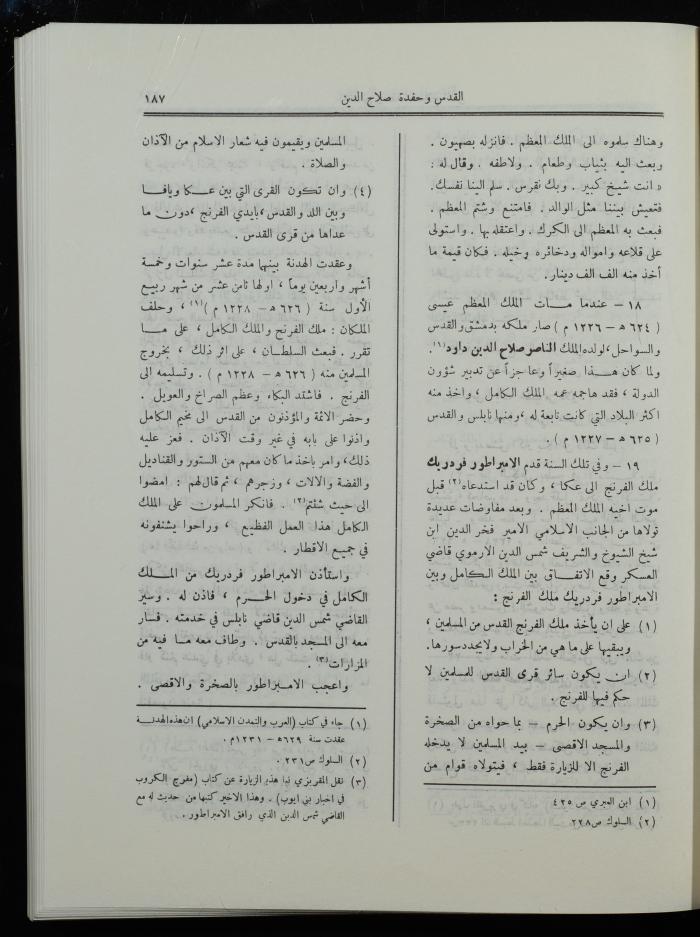 القدس وحفدة صلاح الدين
١٨٧
وهناك سلموه الى الملك المعظم . فانزله بصهيون .
وبعث اليه بثياب وطعام . ولاطفه . وقال له :
« انت شيخ كبير . وبك نقرس . سلم الينا نفسك.
فتعيش بيننا مثل الوالد . فامتنع وشتم المعظم .
فبعث به المعظم الى الكرك . واعتقله بها . واستولى
على قلاعه وامواله ودخائره وخيله . فكان قيمة ما
أخذ منه الف الف دينار.
١٨ – عندما مات الملك المعظم عيسى
( ٦٢٤ ھ – ١٢٢٦ م ) صار ملكه بدمشق والقدس
والسواحل، لولده الملك الناصر صلاح الدين داود (١).
ولما كان هذا صغيراً وعاجزاً عن تدبير شؤون
الدولة ، فقد هاجمه عمه الملك الكامل ، واخذ منه
اكثر البلاد التي كانت تابعة له ،ومنها نابلس والقدس
( ٦٢٥ ھ – ١٢٢٧ م ) .
١٩ – وفي تلك السنة قدم الامبراطور فردريك
ملك الفرنج الى عكا ، وكان قد استدعاه (٢) قبل
موت اخيه الملك المعظم . وبعد مفاوضات عديدة
تولاها من الجانب الاسلامي الامير فخر الدين ابن
شيخ الشيوخ والشريف شمس الدين الارموي قاضي
العسكر وقع الاتفاق بين الملك الكامل وبين
الامبراطور فردريك ملك الفرنج :
(١) على ان يأخذ ملك الفرنج القدس من المسلمين ،
ويبقيها على ما هي من الخراب ولا يجدد سورها.
(٢) ان يكون سائر قرى القدس للمسلمين لا
حكم فيها للفرنج .
(٣) وان يكون الحرم – بما حواه من الصخرة
والمسجد الاقصى – بيد المسلمين لا يدخله
الفرنج الا للزيارة فقط ، فيتولاه قوام من
(١) ابن العبري ص ٤٢٥
(٢) السلوك ص ٢٢٨
المسلمين ويقيمون فيه شعار الاسلام من الآذان
والصلاة .
(٤) وان تكون القرى التي بين عكا ويافا
وبين اللد والقدس ،بايدي الفرنج ،دون ما
عداها من قرى القدس .
وعقدت الهدنة بينها مدة عشر سنوات وخمسة
أشهر واربعين يوماً ، اولها ثامن عشر من شهر ربيع
الأول سنة ( ٦٢٦ ھ – ١٢٢٨ م ) (١) ، وحلف
الملكان : ملك الفرنج والملك الكامل ، على ما
تقرر . فبعث السلطان ، على اثر ذلك ، بخروج
المسلمين منه ( ٦٢٦ ھ – ١٢٢٨ م ) . وتسليمه الى
الفرنج . فاشتد البكاء وعظم الصراخ والعويل .
وحضر الائمة والمؤذنون من القدس الى مخيم الكامل
واذنوا على بابه في غير وقت الآذان . فعز عليه
ذلك، وامر باخذ ما كان معهم من الستور والقناديل
والفضة والالات ، وزجرهم ، ثم قال لهم : امضوا
الى حيث شئتم (٢) . فانكر المسلمون على الملك
الكامل هذا العمل الفظيع ، وراحوا يشنفونه
في جميع الاقطار .
واستأذن الامبراطور فردريك من الملك
الكامل في دخول الحرم ، فاذن له . وسير
القاضي شمس الدين قاضي نابلس في خدمته . فسار
معه الى المسجد بالقدس . وطاف معه ما فيه من
المزارات (٣) .
واعجب الامبراطور بالصخرة والاقصى .
(١) جاء في كتاب (العرب والتمدن الاسلامي) ان هذه الهدنة
عقدت سنة ٦٢٩ھ – ١٢٣١م .
(٢) السلوك ص ٢٣١ .
(٣) نقل المقريزي نبأ هذه الزيارة عن كتاب (مفرج الكروب
في اخبار بني ايوب) . وهذا الاخير كتبها من حديث له مع
القاضي شمس الدين الذي رافق الامبراطور .